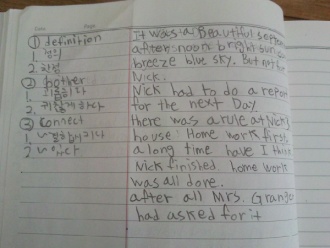 ① definition
1. 정의
2.
② bother
1. 괴롭히다
2. 귀찮게하다
③ connect
1.
2.
It was a Beautiful
after noon bright sun
breeze blue sky. But not for
Nick.
Nick had to do a report
for the next Day.
there was a rule at Nick's
house: Home work first
a long time have I
Nick finished home work
was all done.
after all Mrs. Granger
had asked for it